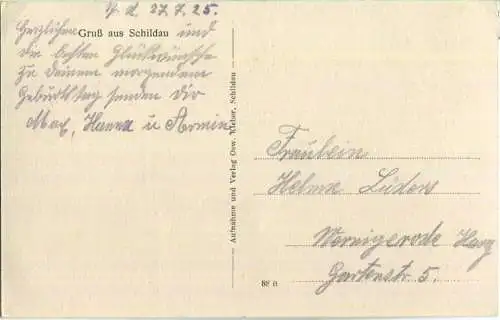 d. 27.7.25.
Herzlichen Gruß aus Schildau und
die besten Glückwünsche
zu deinem morgendem
Geburtstag senden Dir
Max, Hanna u Armin
Aufnahme und Verlag Osw. Kleber, Schildau
Fräulein
Helma Lüders
Wernigerode Harz
Gartenstr. 5.
88 B